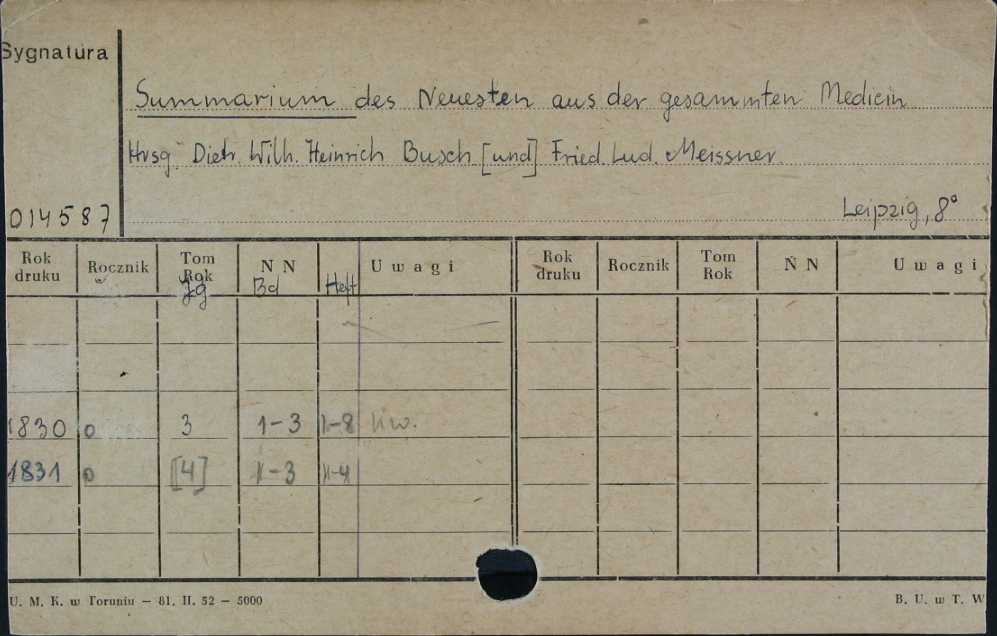 Sygnatura
Summarium des Neuesten aus der gesammten Medicin
Hrsg. Dietr. Wilh. Heinrich Busch [und] Fried. Lud. Meissner.
014587
Leipzig, 8°
Rok druku Rocznik Tom Rok N N Uwagi Rok druku Rocznik Tom Rok N N Uwagi
Jg Bd Heft
1830 0 3 1-3 1-8 kw.
1831 0 [4] 1-3 1-4
U. M. K. w Toruniu — 81. II. 52 — 5000
B. U. w T. W